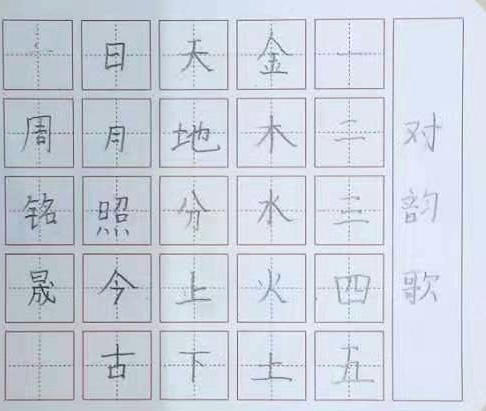 对韵歌
一二三四五
金木水火土
天地分上下
日月照今古
周铭晟